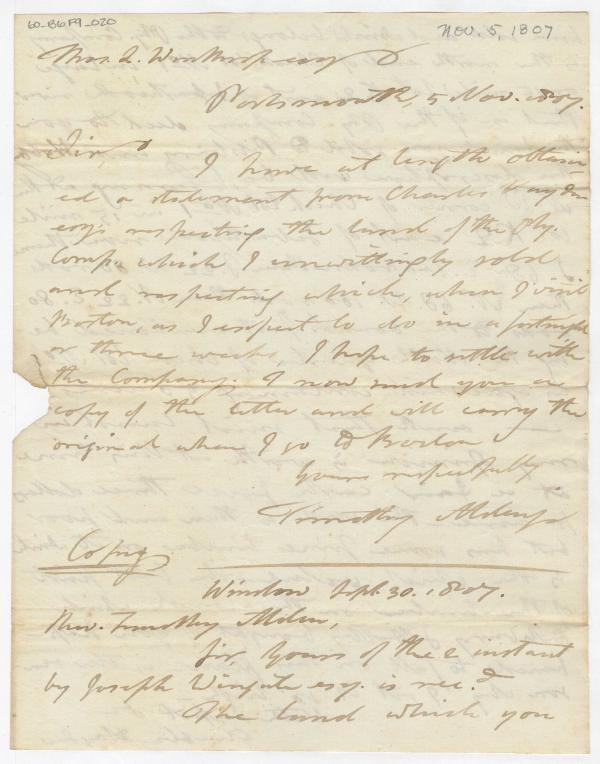 60-B6F9-020
Nov. 5, 1807
Thos. L. Winthrop esq
Portsmouth, 5 Nov. 1807.
Sir,
I have at length obtain-
ed a statement from Charles Hayden
esq. respecting the land of the Ply.
Comp. which I unwittingly sold
and respecting which, when I visit
Boston, as I expect to do in a fortnight
or three weeks, I hope to settle with
the Company. I now send you a
copy of the letter and will carry the
original when I go to Boston
Yours respectfully
Timothy Alden jr
Copy
Winslow Sept. 30. 1807.
Rev. Timothy Alden,
Sir, Yours of the 2 instant
by Joseph Wingate esq. is rec.d
The land which you